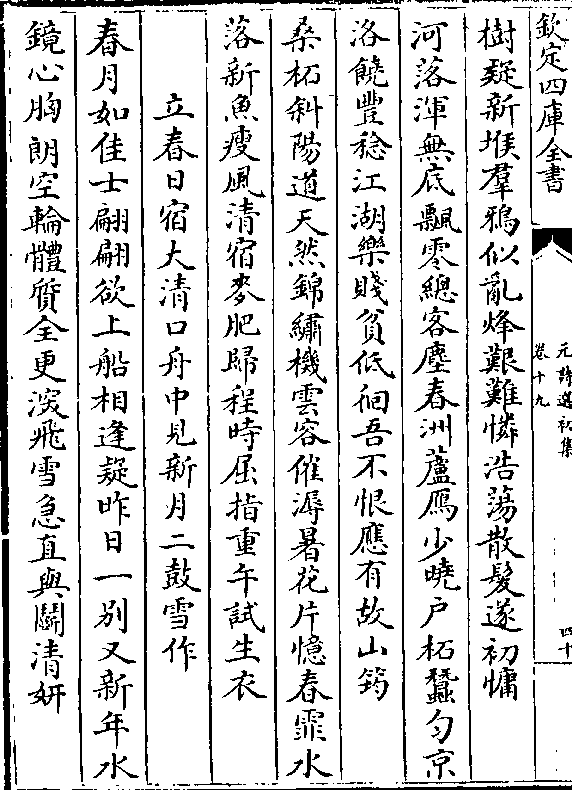 欽定四庫全書
元詩選初集
卷十九
四十
樹疑新堠羣鴉似亂烽艱難憐浩蕩散髮遂初慵
河落渾無底飄零總客塵春洲蘆鴈少曉戶柘蠶勻京
洛饒豐稔江湖樂賤貧低徊吾不恨應有故山筠
桑柘斜陽道天然錦繡機雲容催溽暑花片憶春霏水
落新魚瘦風清宿麥肥歸程時屈指重午試生衣
立春日宿大清口舟中見新月二鼓雪作
春月如佳士翩翩欲上船相逢疑昨日一別又新年水
鏡心胸朗空輪體質全更深飛雪急直與鬭清妍